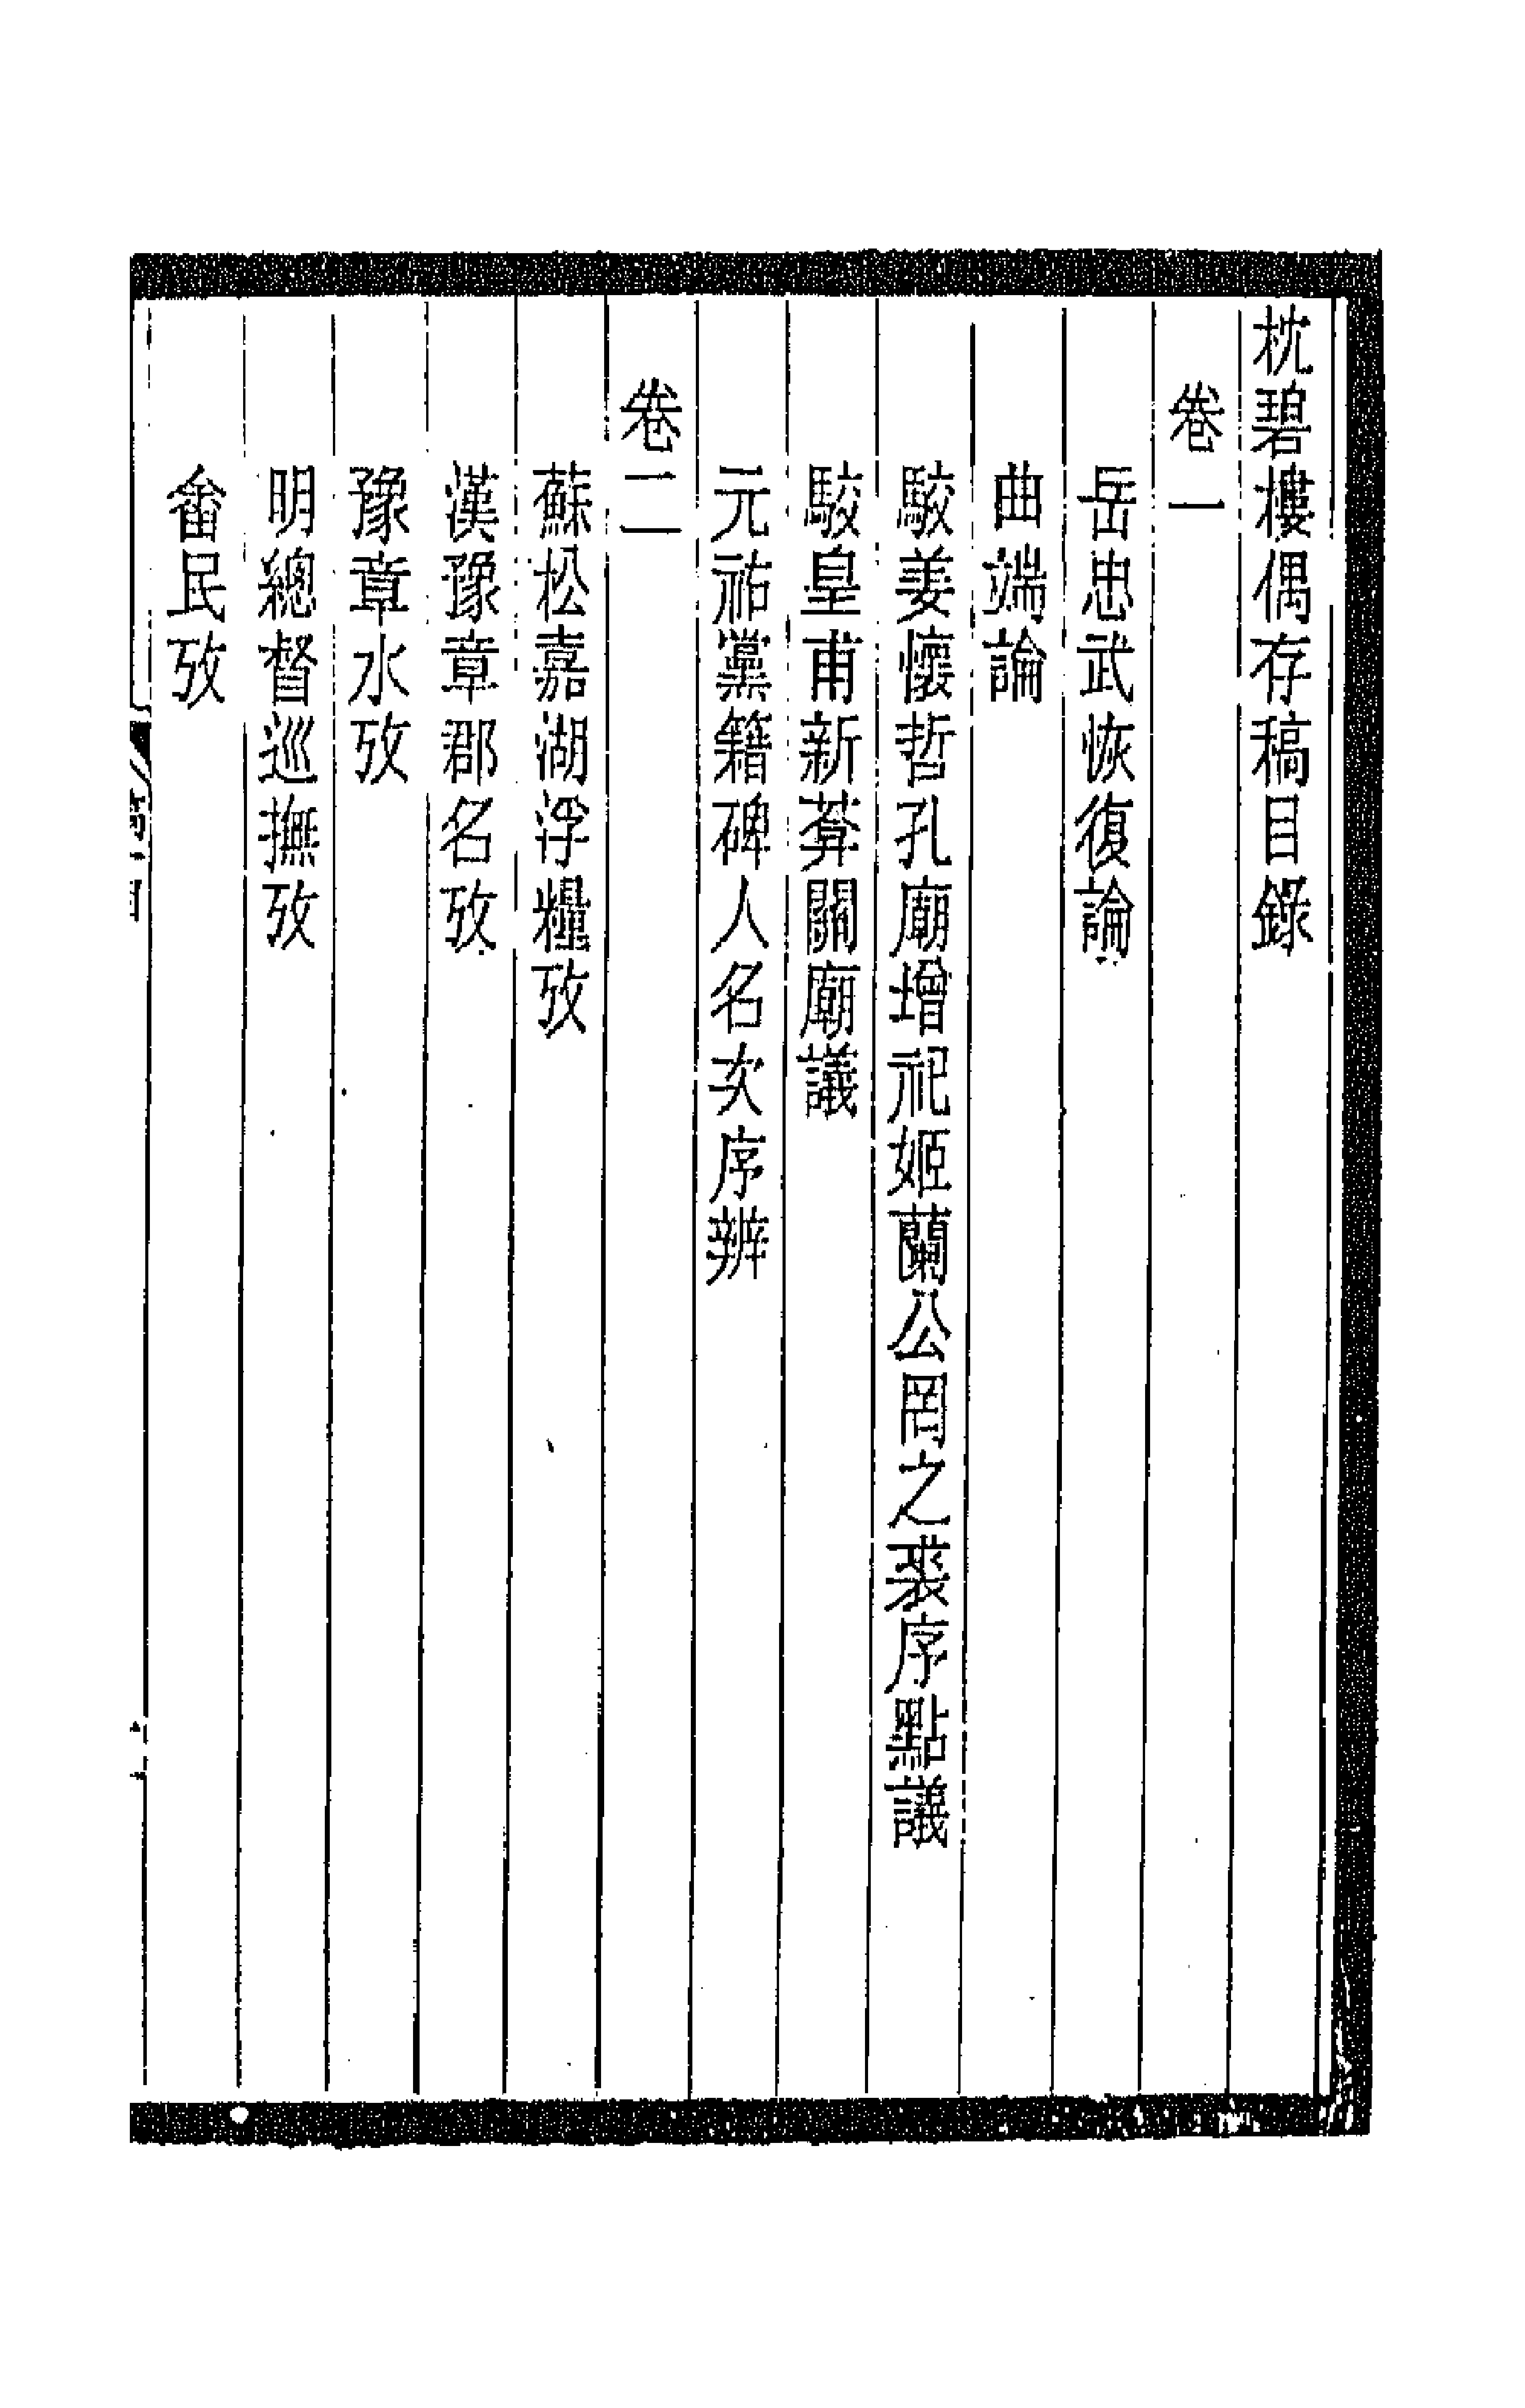 枕碧樓偶存稿目錄
卷一
岳忠武恢復論
曲端論
駮姜懷哲孔廟增祀姬蘭公罔之裘序點議
駮皇甫新葬關廟議
元祐黨籍碑人名次序辨
卷二
蘇松嘉湖浮糧攷
漢豫章郡名攷
豫章水攷
明總督巡撫攷
畲民攷